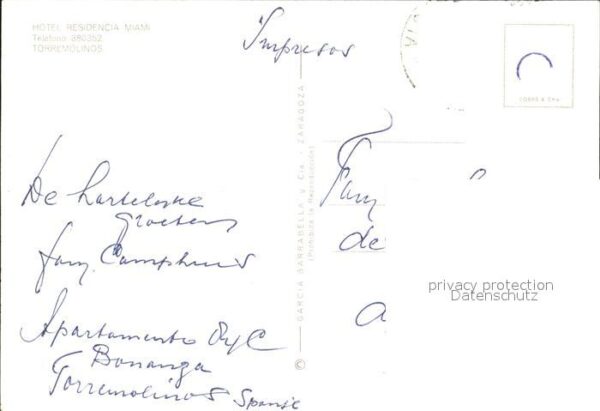 HOTEL RESIDENCIA MIAMI
Teléfono 380352
TORREMOLINOS
Impresos
De hartelijke
groeten
fam. Camphuis
Apartamento
Bonanga
Torremolinos Spanje
GARCIA GARRABELLA y Cia. - ZARAGOZA
(Prohibida la Reproducción)
©
Fam
de
A
privacy protection
Datenschutz